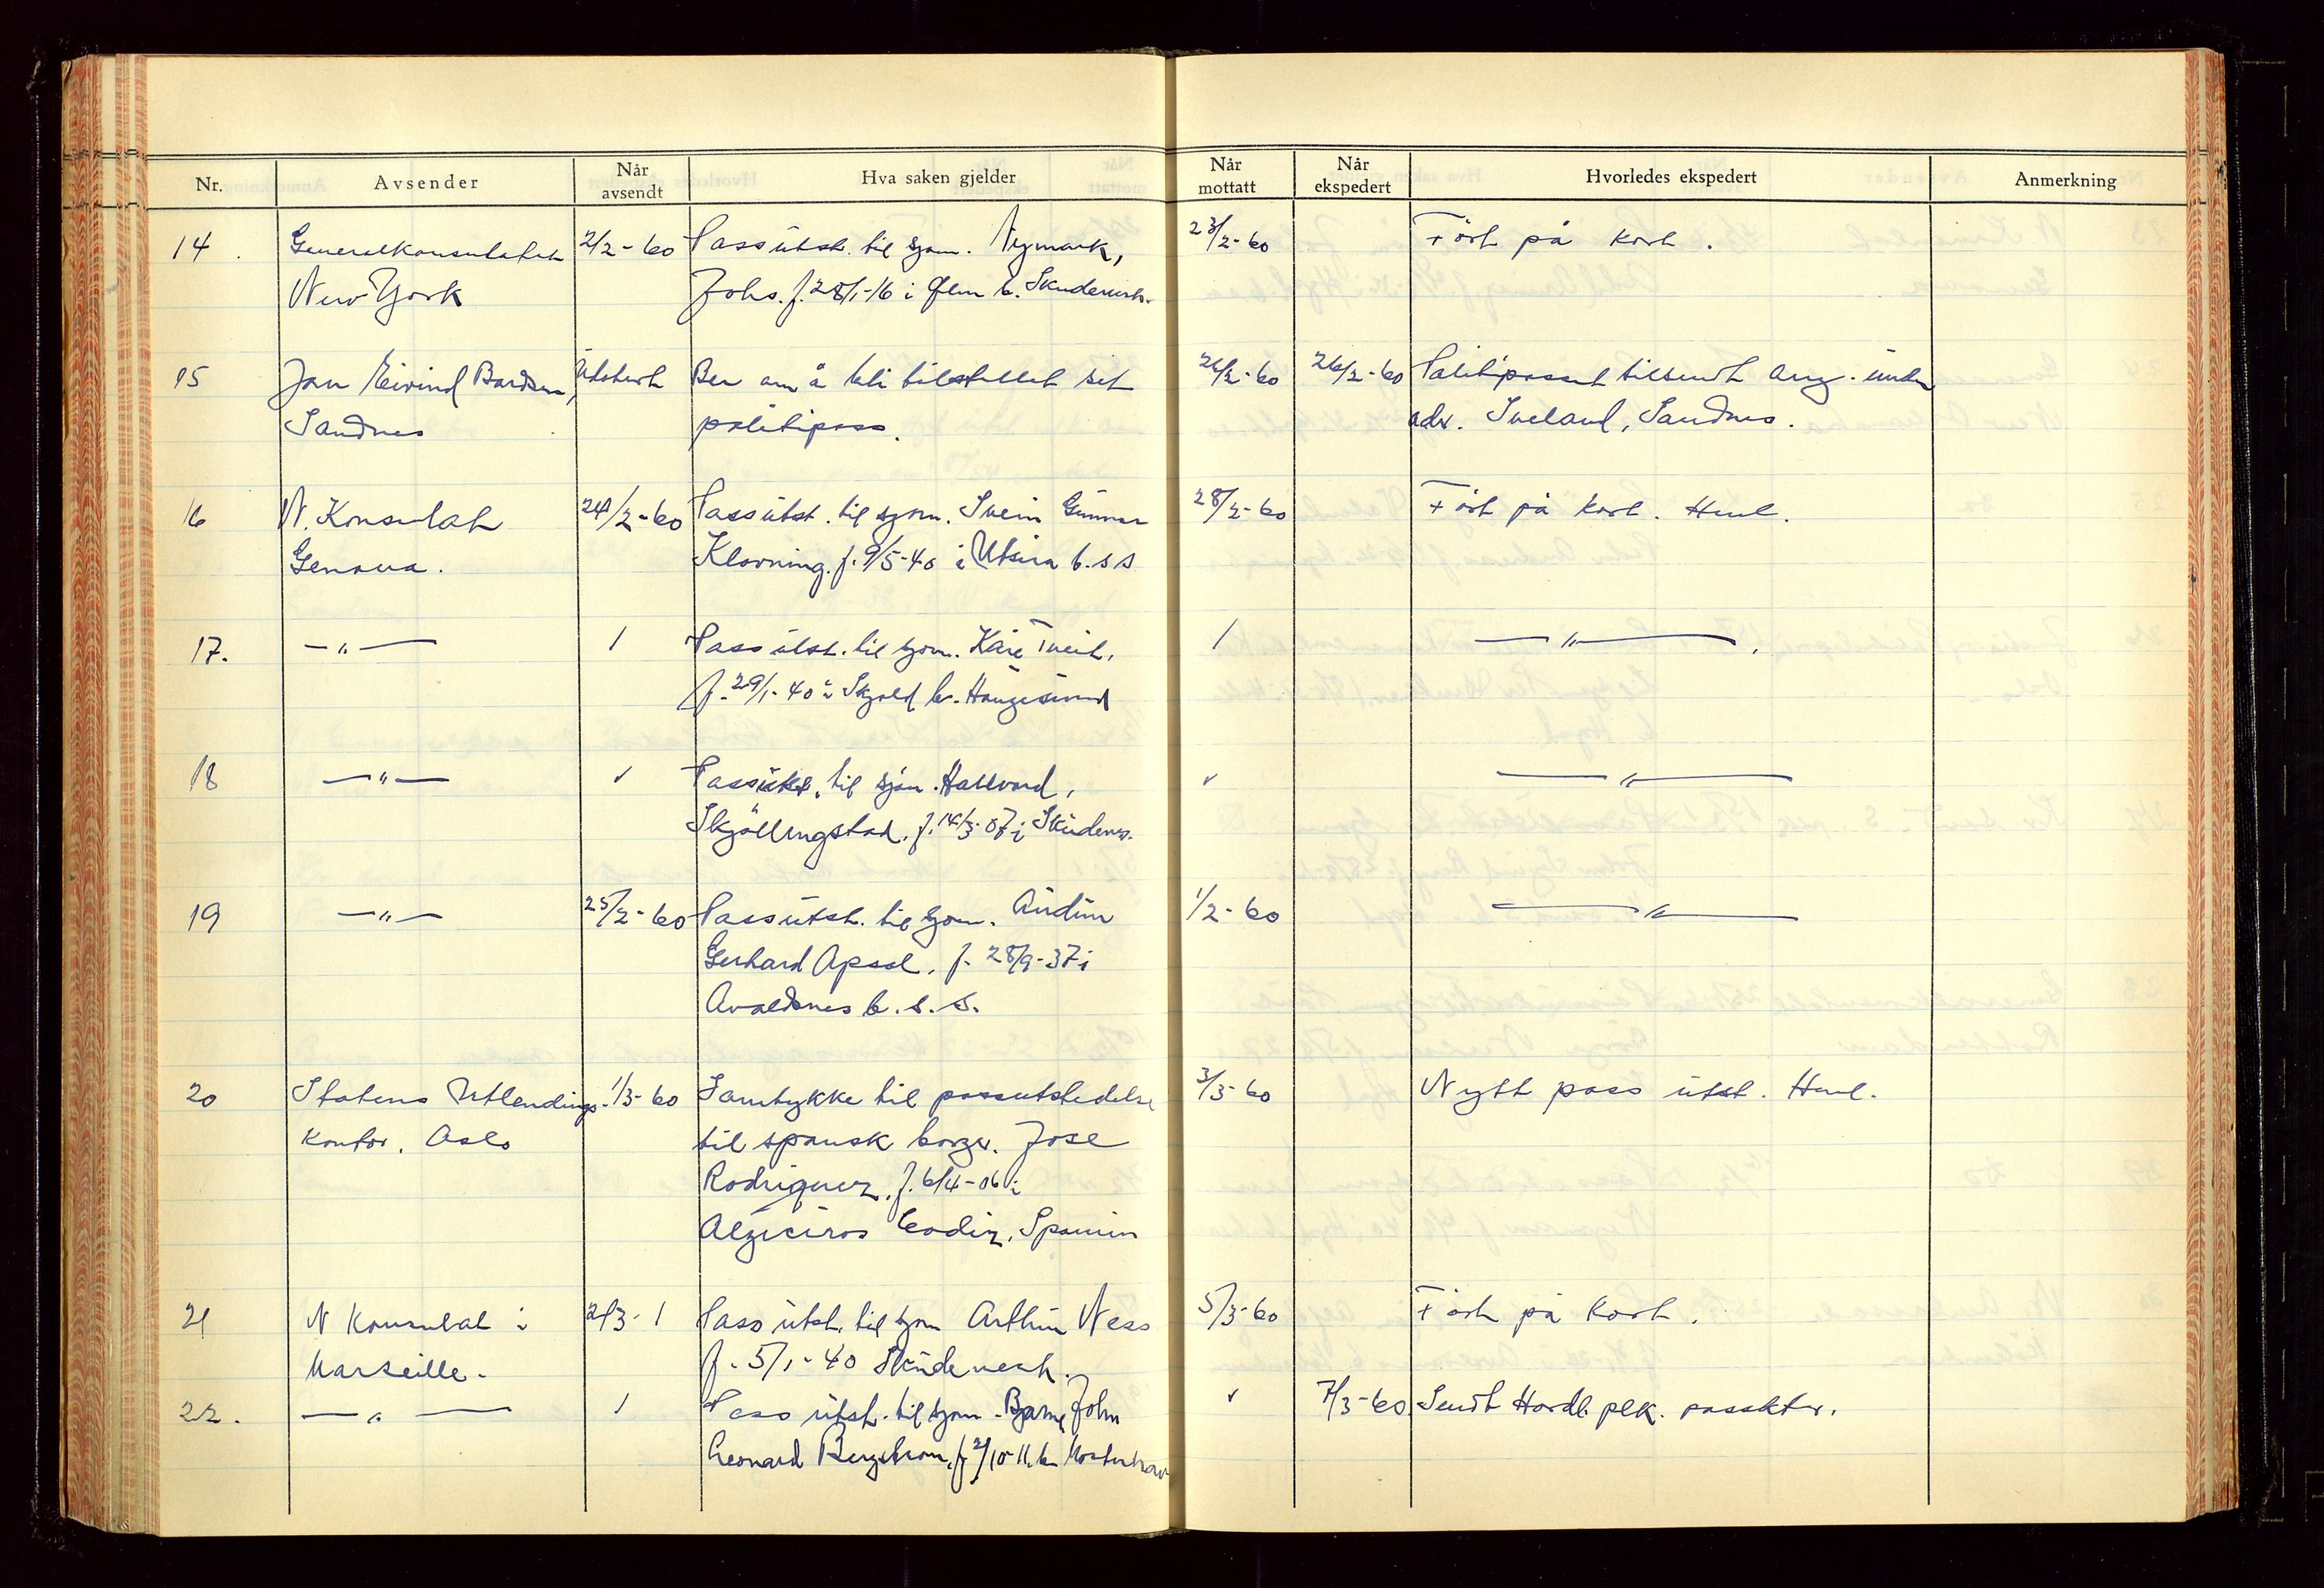 Nr. Avsender Når avsendt Hva saken gjelder Når mottatt Når ekspedert Hvorledes ekspedert Anmerkning
14. Generalkonsulatet 2/2-60 Pass utst. til sjøm. Nymark, 23/2-60 Ført på kort.
New York Johs. f. 28/1-16 i b. Skudenesh.
15 Jan Eivind Bardsen, Udatert Ber om å bli tilstillet sit 26/2-60 26/2-60 Politipasset tilsendt ang. under
Sandnes politipass. adr. Sveland, Sandnes.
16 N. Konsulat 24/2-60 Pass utst. til sjøm. Svein Gunnar 28/2-60 Ført på kort. Henl.
Genova. Klovning. f. 9/5-40 i Utsira b. s s
17. —"— / Pass utst. til sjøm. Kåre Tveit, / —"—.
f. 29/1-40 i Skjold b. Haugesund
18 —"— ✓ Pass utst. til sjøm. Hallvard, ✓ —"—
Skjöllingstad. f. 14/3-07 i Skudenes.
19 —"— 25/2-60 Pass utst. til sjøm. Audun 1/2-60 —"—
Gerhard Apsol, f. 28/9-37 i
Avaldsnes b. s. s.
20 Statens Utlendings- 1/3-60 Samtykke til passutstedelse 3/3-60 Nytt pass utst. Henl.
kontor, Oslo til spansk borger. Jose
Rodriguez, f. 6/4-06 i
Algiciros Cadiz, Spanien
21 N Konsulat i 2/3- / Pass utst. til sjøm Arthur Ness 5/3-60 Ført på kort.
Marseille. f. 5/1-40 Skudenesh.
22. —"— / Pass utst. til sjøm. Bjarne John ✓ 7/3-60 Sendt Hordl. plk. passktr.
Leonard Bergstrøm, f. 2/10-11. b.